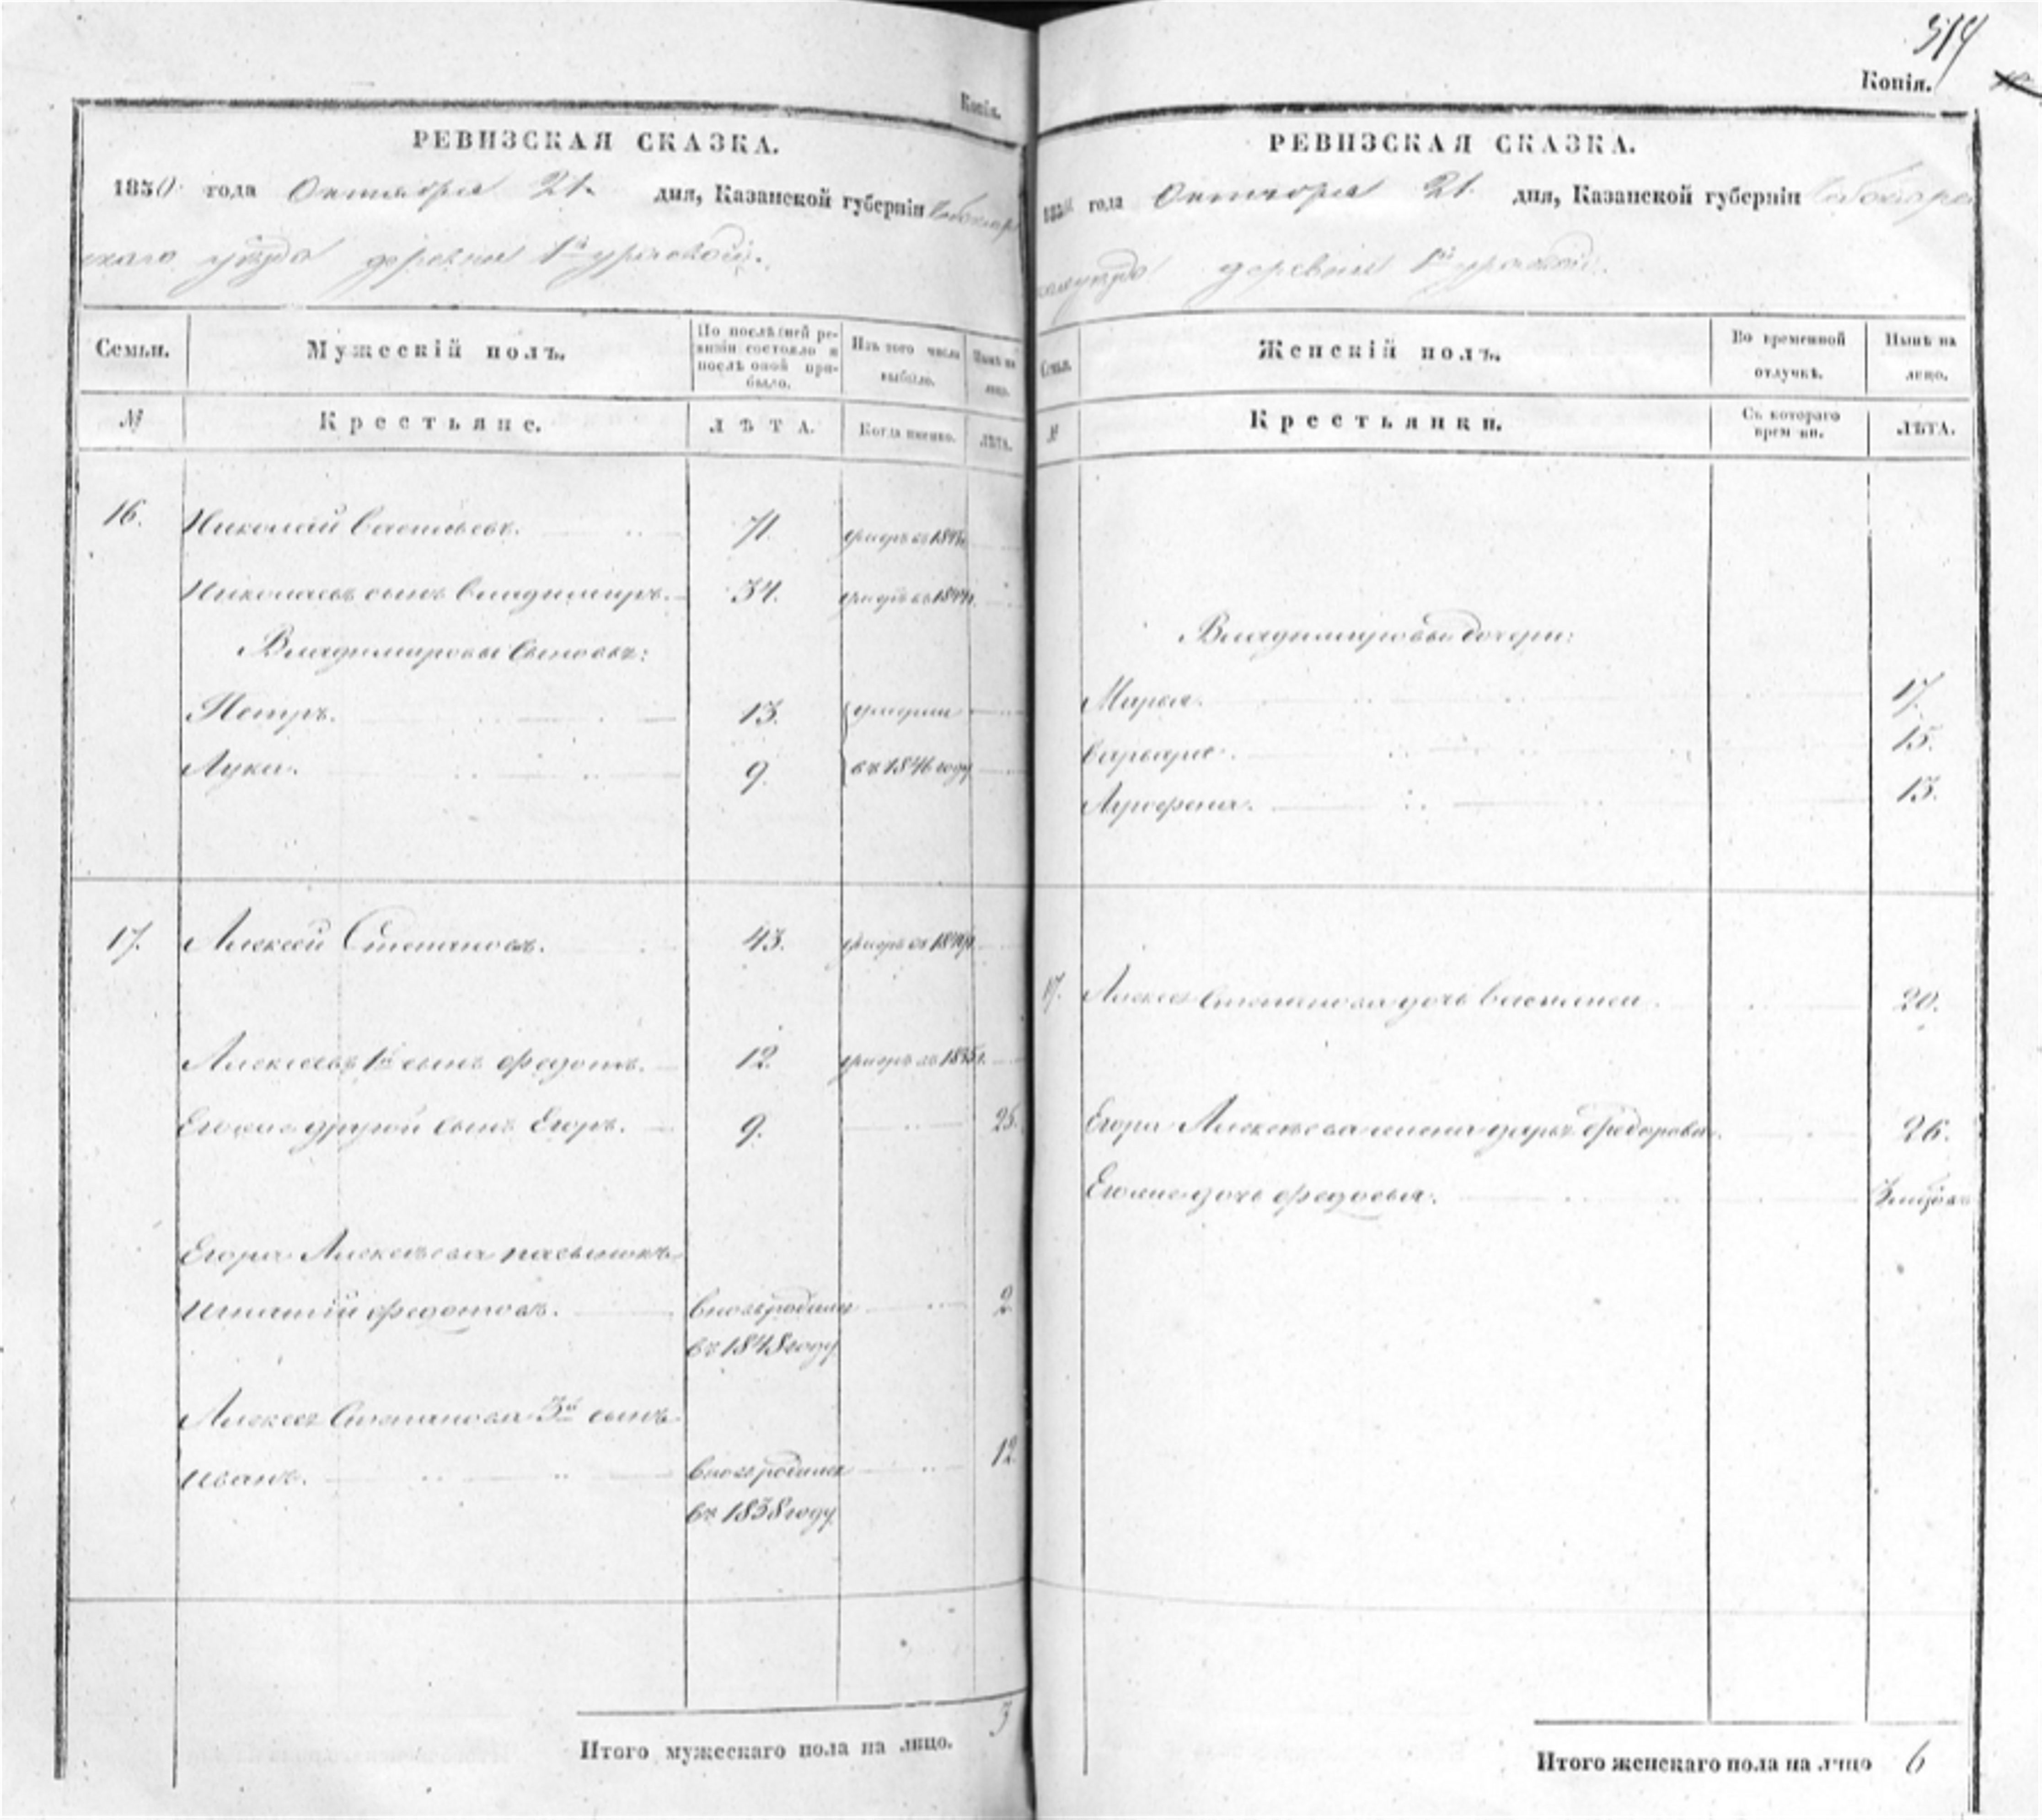 314
Копія.
Копія.
РЕВИЗСКАЯ СКАЗКА.
1850 года Октября 21 дня, Казанской губерніи Чебоксар
скаго уѣзда деревни 1й
Семьи.
Мужескій полъ.
По послѣдней ре-
визіи состояло и
послѣ оной при-
было.
Изъ того числа
выбыло.
Нынѣ на
лицо.
№
Крестьяне.
ЛѢТА.
Когда именно.
ЛѢТА.
16. Николай Васильевъ. 71
Николаевъ сынъ Владимиръ. 34.
Владимировы сыновья:
Петръ. 13. умерли
Лука. 9. въ 1846 году
17. Алексей Степановъ. 43.
Алексеевъ 1й сынъ Федотъ. 12. умеръ въ 1835 г.
Его же другой сынъ Егоръ. 9. 25.
Егора Алексѣева пасынокъ
Игнатій Федотовъ. вновь родился 2
въ 1848 году
Алексея Степанова 3й сынъ
Иванъ. вновь родился 12
въ 1838 году
Итого мужескаго пола на лицо. 3
РЕВИЗСКАЯ СКАЗКА.
1850 года Октября 21 дня, Казанской губерніи Чебоксар
скаго уѣзда деревни 1й
Семьи.
Женскій полъ.
Во временной
отлучкѣ.
Нынѣ на
лицо.
№
Крестьянки.
Съ котораго
времени.
ЛѢТА.
Владимировы дочери:
Марья. 17.
Варвара. 15.
Аграфена. 13.
17. Алексея Степанова дочь Василиса. 20.
Егора Алексѣева жена Дарья Федорова. 26.
Его же дочь Федосья.
Итого женскаго пола на лицо 6